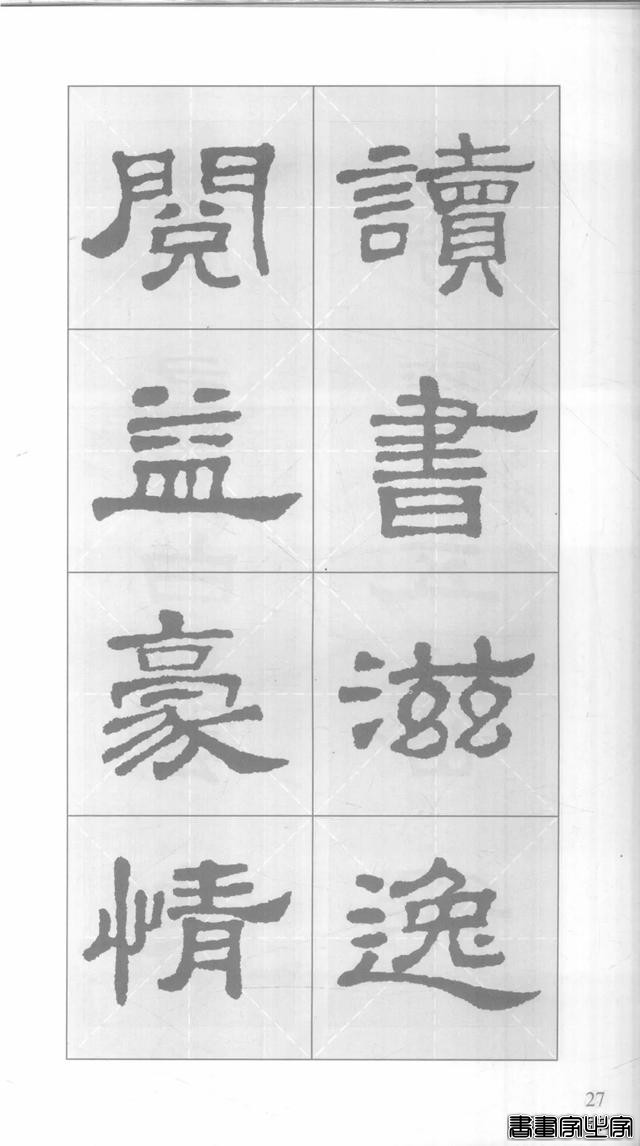 讀書滋逸
閱益豪情
27
書畫家之家